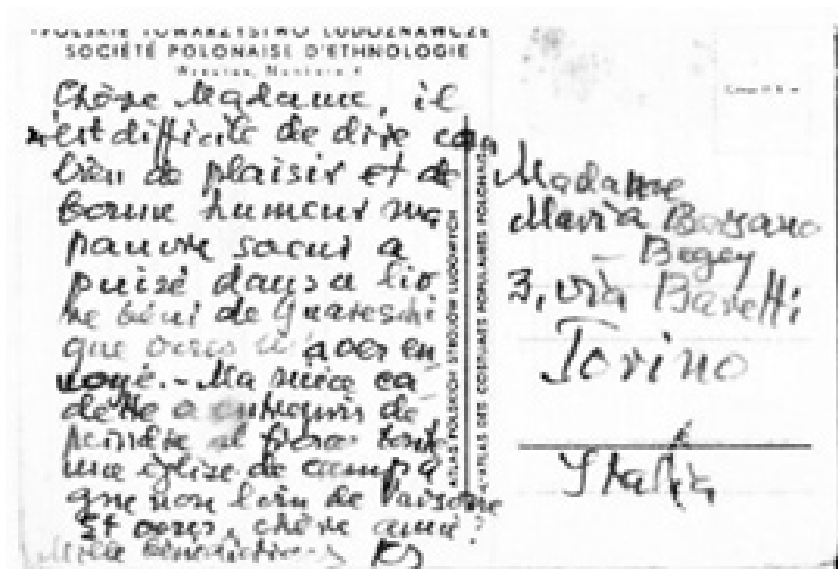 POLSKIE TOWARZYSTWO LUDOZNAWCZE
SOCIÉTÉ POLONAISE D'ETHNOLOGIE
Chère Madame, il
n'est difficile de dire com
bien de plaisir et de
bonne humeur ma
pauvre soeur a
puisé dans a liv
re béni de Guareschi
que vous
voyé. - Ma nièce ca-
dette a entrepris de
peindre al fresco toute
une église de campa
gne non loin de
Et vous, chère amie?
Mille bénédictions
ATLAS POLSKICH STROJÓW LUDOWYCH
L'ATLAS DES COSTUMES POPULAIRES POLONAIS
Madame
Maria Bersano
- Begey
3, via Baretti
Torino